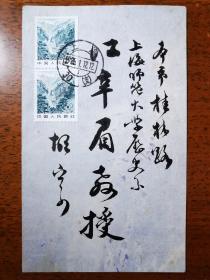 本市桂林路
上海师范大学历史系
江辛眉教授
胡
中国人民邮政
中国人民邮政